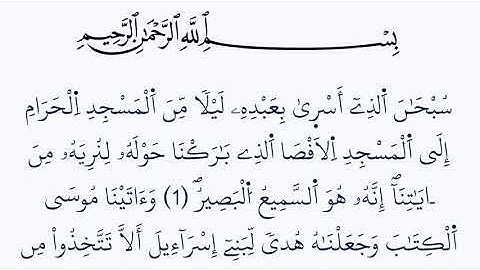 بِسْمِ اللَّهِ الرَّحْمَٰنِ الرَّحِيمِ
سُبْحَٰنَ اَ۬لذِےٓ أَسْر۪يٰ بِعَبْدِهِۦ لَيْلاٗ مِّنَ اَ۬لْمَسْجِدِ اِ۬لْحَرَامِ
إِلَي اَ۬لْمَسْجِدِ اِ۬لَاقْصَا اَ۬لذِے بَٰرَكْنَا حَوْلَهُۥ لِنُرِيَهُۥ مِنَ
ـايَٰتِنَآۖ إِنَّهُۥ هُوَ اَ۬لسَّمِيعُ اُ۬لْبَصِيرُۖ (1) وَءَاتَيْنَا مُوسَي
اَ۬لْكِتَٰبَ وَجَعَلْنَٰهُ هُديٗ لِّبَنِےٓ إِسْرَآءِيلَ أَلَّا تَتَّخِذُواْ مِن